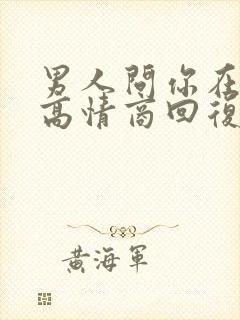 男人問你在
高情商回復
黃海軍